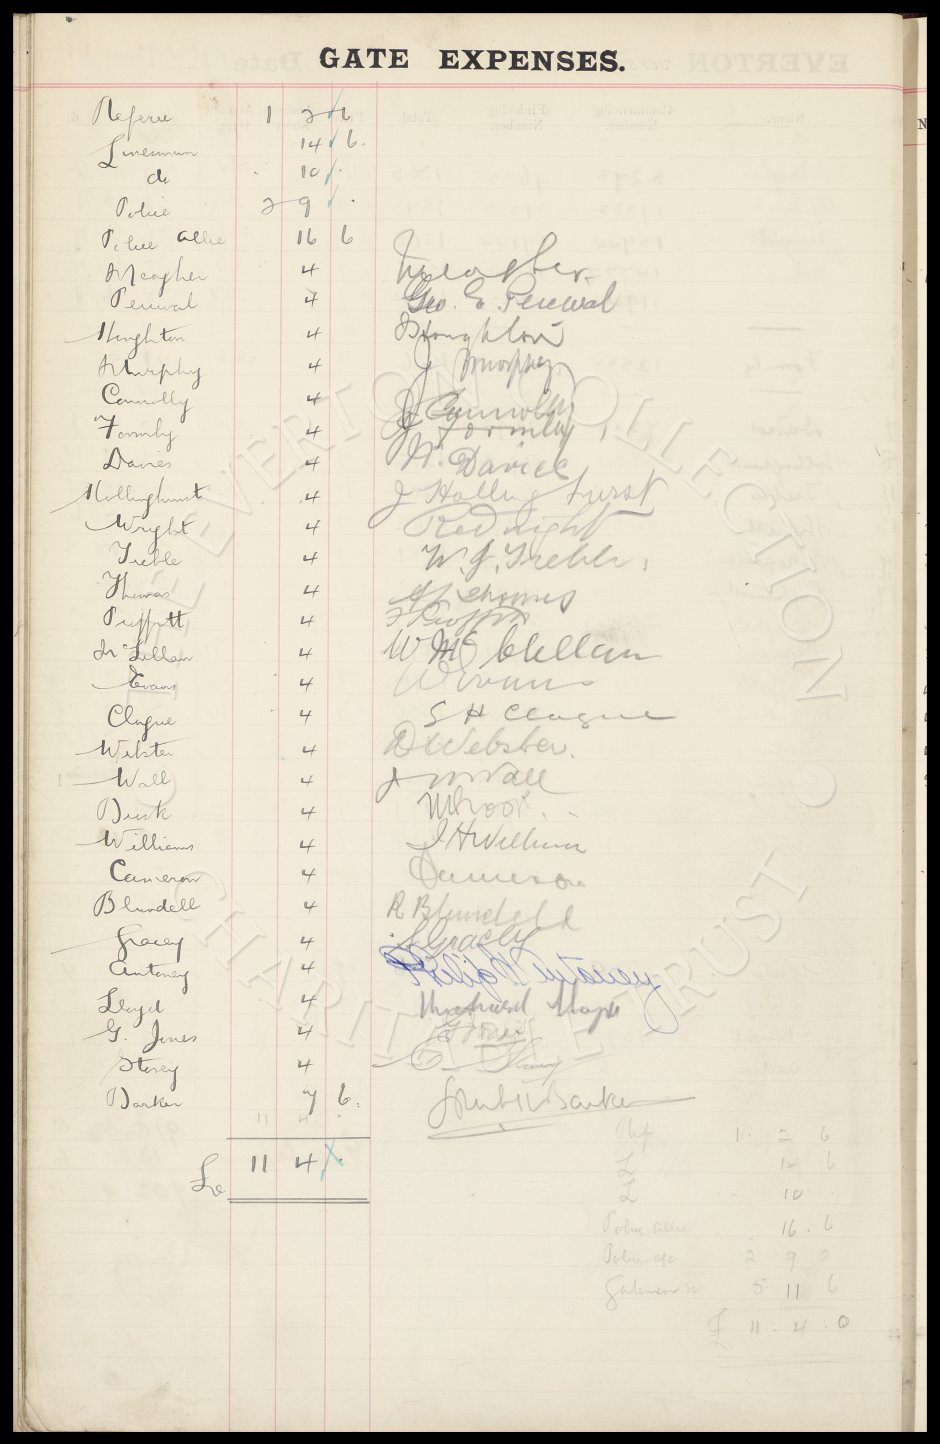 GATE EXPENSES.
Referee 1 2 6
Linesman 14 6.
do 10
Police 2 9 .
Police Allce 16 6
Meagher 4 Meagher
Percival 4 Geo. E. Percival
Houghton 4 Houghton
Murphy 4 J Murphy
Connolly 4 J Connolly
Formby 4 J Formby
Davies 4 W. Davies
Hollinghurst 4 J Hollinghurst
Wright 4
Treble 4 W. J. Treble
Thomas 4 Thomas
Proffitt 4
McLellan 4 W McClellan
Evans 4 W Evans
Clague 4 S H Clague
Webster 4 D Webster.
Wall 4 J W Wall
4
Williams 4 J H William
Cameron 4 Cameron
Blundell 4 R Blundell
Gracey 4 J Gracey
Antoney 4 Antoney
Lloyd 4
G. Jones 4 G Jones
Storey 4
Barker 7 6. Barker
11 4
£ 11 4 .
Ref 1 2 6
L 14 6
L 10
Police Allce 16 . 6
Police a/c 2 9 0
Gatemen 5 11 6
£ 11 : 4 : 0
THE EVERTON COLLECTION CHARITABLE TRUST ©